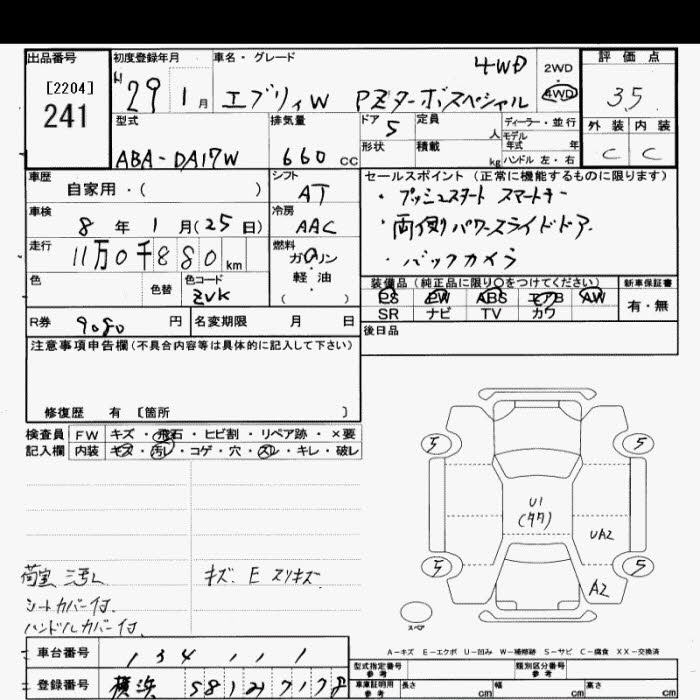 出品番号
[2204]
241
初度登録年月
H 29 1月
車名・グレード
エブリィW PZターボスペシャル 4WD
2WD
4WD
評価点
3.5
外装 内装
C C
型式
ABA-DA17W
排気量
660 CC
ドア
5
形状
定員
人
積載
kg
ディーラー・並行
モデル年式 年
ハンドル 左・右
車歴
自家用・( )
シフト
AT
車検
8年1月(25日)
冷房
AAC
走行
11万0千880km
燃料
ガソリン
・
軽油
( )
色
色替
色コード
ZVK
R券
9080円
名変期限 月 日
セールスポイント(正常に機能するものに限ります)
・プッシュスタート スマートキー
・両側パワースライドドア
・バックカメラ
装備品(純正品に限り○をつけてください)
新車保証書
PS PW ABS エアB AW
SR ナビ TV カワ
有・無
後日品
注意事項申告欄(不具合内容等は具体的に記入して下さい)
修復歴 有 [箇所 ]
検査員
記入欄
FW キズ・飛石・ヒビ割・リペア跡・×要
内装 キズ・汚れ・コゲ・穴・スレ・キレ・破レ
荷室 汚レ
シートカバー付.
ハンドルカバー付.
キズ. E スリキズ.
5 5
U1
(タタ)
UA2
5 5
A2
スペア
A-キズ E-エクボ U-凹み W-補修跡 S-サビ C-腐食 XX-交換済
車台番号
134111
登録番号
横浜 581
型式指定番号
参考
類別区分番号
参考
車庫証明用
参考
長さ cm
幅 cm
高さ cm